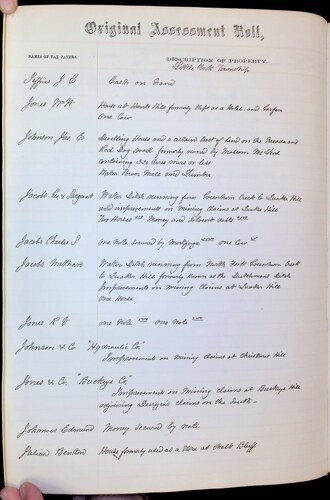 Original Assessment Roll,
NAMES OF TAX PAYERS.
DESCRIPTION OF PROPERTY.
Little York Township
Jeffries J. C. Cash on hand
Jones Wm H House at Hunts Hill formerly kept as a Hotel and
One Cow
Johnson Jas E Dwelling House and a certain tract of land on the Nevada and
Red Dog road formerly owned by Malcom Mc Leod
containing 320 acres more or less
Water Power Mill and
Jacobs Geo & Sargent Water Ditch running from Greenhorn Creek to Quaker Hill
and improvements on Mining claims at Quaker Hill
Two Horses Money and Solvent debts
Jacobs Charles I one Note secured by mortgage one Cow
Jacobs Nathan Water Ditch running from North Fork Greenhorn Creek
to Quaker Hill formerly known as the Dutchman Ditch
Improvements on mining claims at Quaker Hill
One Horse
Jones R one Note one Note
Johnson & Co "Hydraulic Co"
Improvements on mining claims at Christmas Hill
Jones & Co. "Buckeye Co"
Improvements on mining claims at Buckeye Hill
adjoining claims on the South
Johannes Edward Money secured by note
Julien Benton House formerly used as a Store at Chalk Bluff